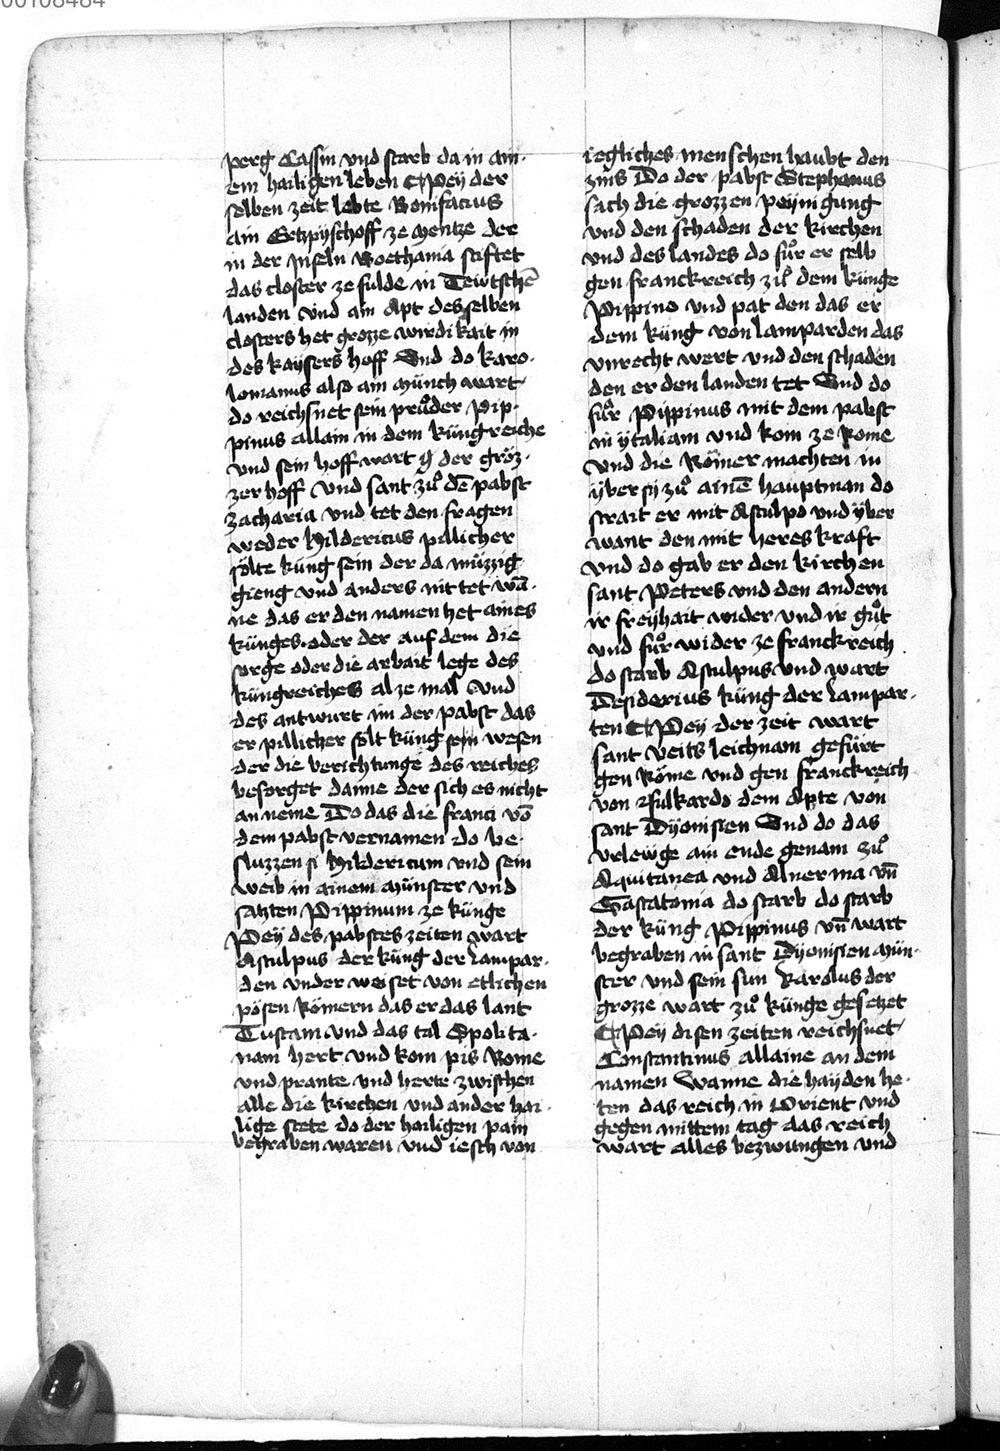 00108484
perg Cassin vnd starb da in ain-
em hailigen leben ¶ Pey der
selben zeit lebte Bonifacius
ain Ertzpyschoff ze Mentze der
in der Inseln Boethania stiftet
das closter ze fulde in Tewtschē
landen vnd ain Apt desselben
closters het grozze wirdikait in
des kaysers hoff Vnd do karo-
lomanus also ain Münch wart
do reichsnet sein průder Pip-
pinus allain in dem küngreiche
vnd sein hoff wart der gröz-
zer hoff Vnd sant zů dē pabst
zacharia vnd tet den fragen
weder Hildericus pillicher
sölte küng sein der da müzzig
gieng vnd anders nit tet wā-
ne das er den namen het aines
künges oder der auf dem die
sorge oder die arbait lege des
küngreiches al ze mal Vnd
des antwurt im der pabst das
er pillicher solt küng sein wesen
der die berichtunge des reiches
besorget danne der sich es nicht
an neme Do das die franci vō
dem pabst vernamen do be-
sluzzen si Hildericum vnd sein
weib in ainem Münster vnd
satzten Pippinum ze künge
Pey des pabstes zeiten wart
Astulpus der küng der Lampar-
den vnder weiset von etlichen
pösen Römern das er das lant
Tusciam vnd das tal Spolita-
nam hert vnd kom pis Rome
vnd prante vnd herte zwischen
alle die kirchen vnd ander hai-
lige stete do der hailigen pain
begraben waren vnd iesch von
iegliches menschen haubt den
zins Do der pabst Stephanus
sach die grozzen peynigung
vnd den schaden der kirchen
vnd des landes do fůr er selb
gen franckreich zů dem künge
Pippino vnd pat den das er
dem küng von lamparden das
vnrecht wert vnd den schaden
den er den landen tet Vnd do
fůr Pippinus mit dem pabst
in ytaliam vnd kom ze Rome
vnd die Römer machten in
über sy zů ainē hauptman do
strait er mit Astulpo vnd über
want den mit heres kraft
vnd do gab er den kirchen
sant Peters vnd den andern
ir freyhait wider vnd ir gůt
vnd fůr wider ze franckreich
do starb Astulpus vnd wart
Desiderius küng der Lampar-
ten ¶ Pey der zeit wart
sant veits leichnam gefürt
gen Röme vnd gen franckreich
von fulkardo dem Apte von
sant Dyonisien Vnd do das
vrleüge ain ende genam zů
Aquitanea vnd vn̄
do starb do starb
der küng Pippinus vn̄ wart
begraben in sant Dyonisien Mün-
ster vnd sein sun Karolus der
grozze wart zů künge gesetzet
¶ Pey disen zeiten reichsnet
Constantinus allaine an dem
namen Wanne die hayden he-
ten das reich in Orient vnd
gegen mittem tag das reich
wart alles bezwungen vnd